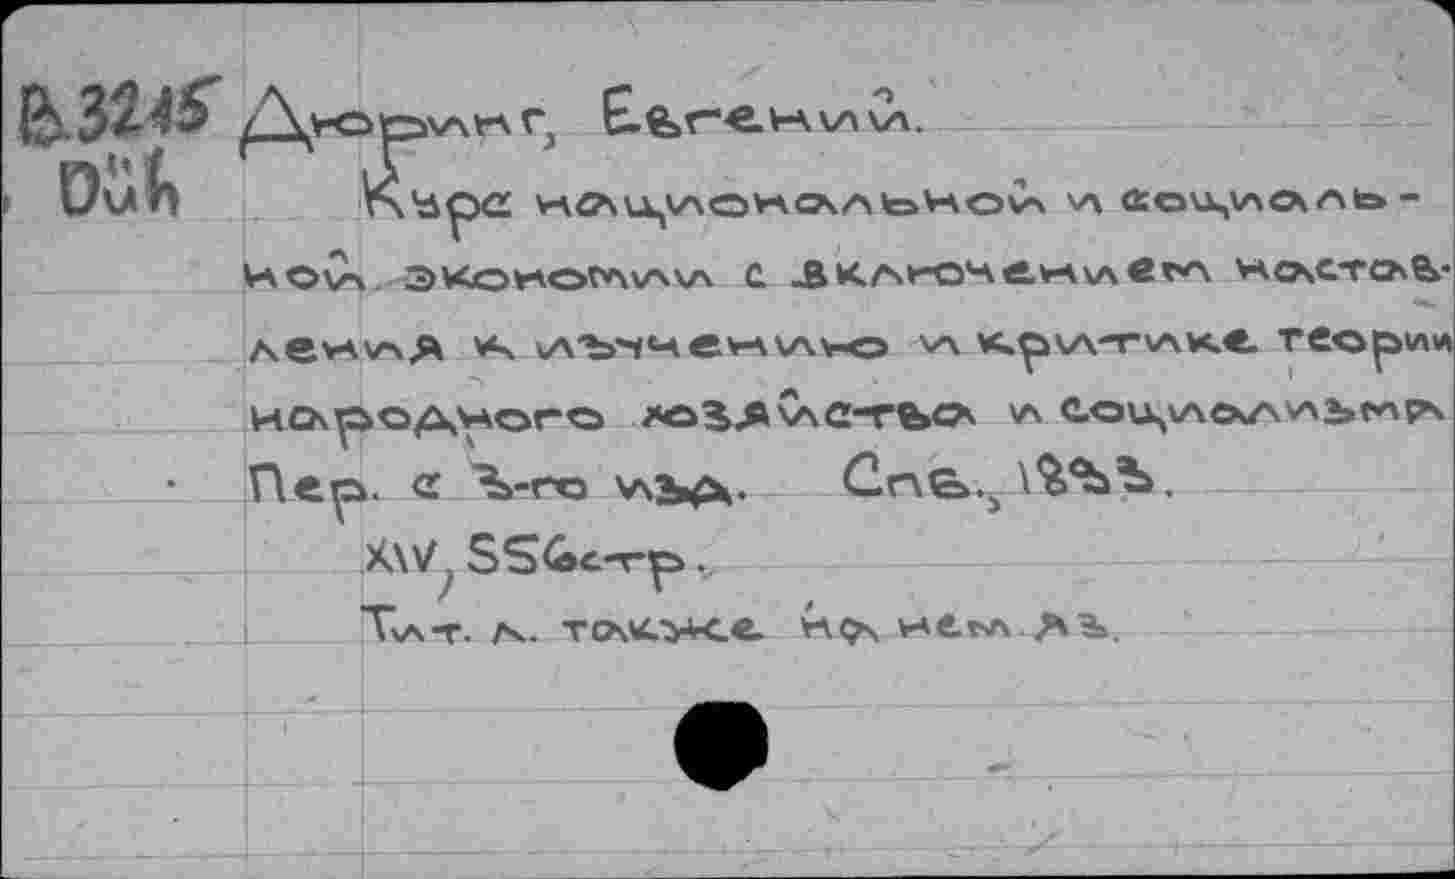 В3245 Дюринг, Евгений.
Düh Курс национальной и социаль-
ной экономии с включением настав-
ления к изучению и критике теории
народного хозяйства и социализма
Пер. с 3-го изд. Спб., 1893.
XIV, 556 стр.
Тит. л. также на нем. яз.